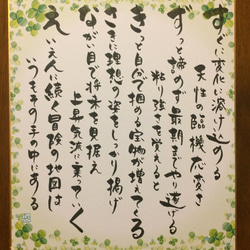 すぐに変化に溶け込める
天性の臨機応変さ
ずっと諦めず最期までやり遂げる
粘り強さを覚えると
きっと自分で掴める宝物が増えてくる
さきに理想の姿をしっかり掲げ
ながい目で将来を見据え
上昇気流に乗っていく
えいえんに続く冒険の地図は
いつもその手の中にある